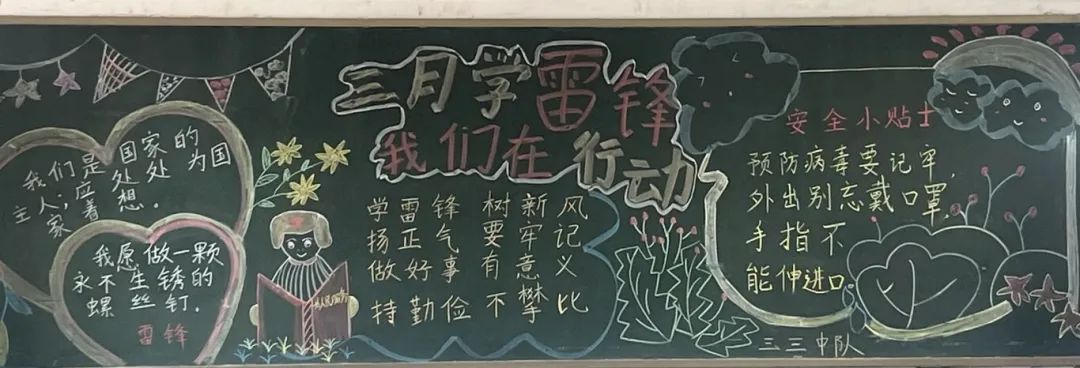 三月学雷锋
我们在行动
我们是国家的
主人,应处处为国
家着想。
我愿做一颗
永不生锈的
螺丝钉.
雷锋
学雷锋 树新风
扬正气 要牢记
做好事 有意义
持勤俭 不攀比
安全小贴士
预防病毒要记牢,
外出别忘戴口罩,
手指不
能伸进口
三三中队